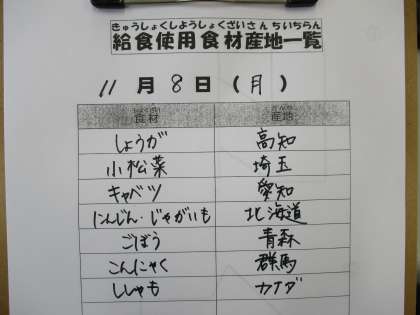 きゅうしょくしようしょくざいさんちいちらん
給食使用食材産地一覧
11月8日(月)
食材 産地
しょうが 高知
小松菜 埼玉
キャベツ 愛知
にんじん・じゃがいも 北海道
ごぼう 青森
こんにゃく 群馬
ししゃも カナダ